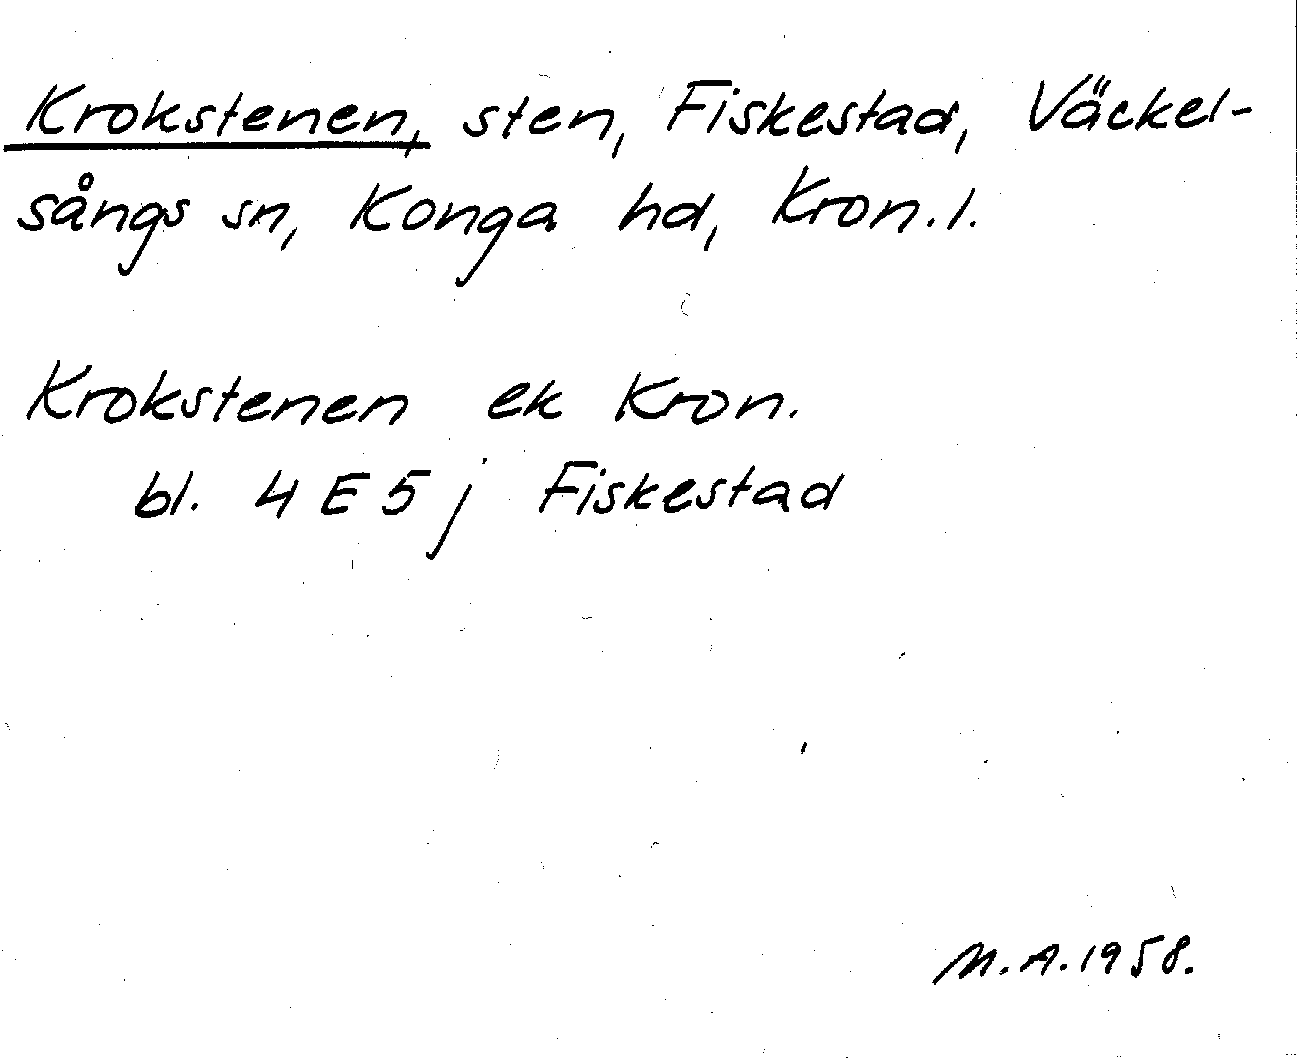 Krokstenen, sten, Fiskestad, Väckel-
sångs sn, Konga hd, Kron.l.
Krokstenen ek Kron.
bl. 4 E 5 j Fiskestad
M.A. 1958.